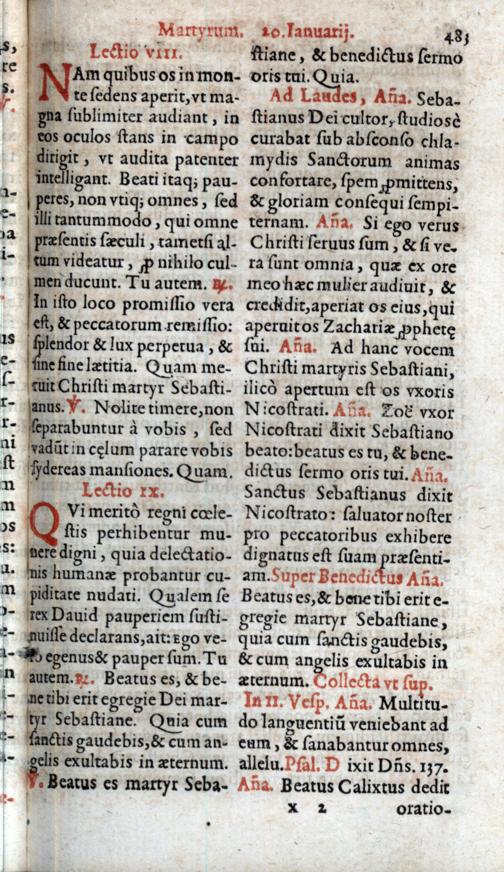 Martyrum. 20. Ianuarij. 483
Lectio viii.
NAm quibus os in mon-
te sedens aperit, vt ma-
gna sublimiter audiant, in
eos oculos stans in campo
dirigit, vt audita patenter
intelligant. Beati itaq; pau-
peres, non vtiq; omnes, sed
illi tantummodo, qui omne
præsentis sæculi, tametsi al-
tum videatur, ꝓ nihilo cul-
men ducunt. Tu autem. ℟.
In isto loco promissio vera
est, & peccatorum remissio:
splendor & lux perpetua, &
sine fine lætitia. Quam me-
ruit Christi martyr Sebasti-
anus. ℣. Nolite timere, non
separabuntur à vobis, sed
vadũt in cęlum parare vobis
sydereas mansiones. Quam.
Lectio ix.
QVi meritò regni cœle-
stis perhibentur mu-
nere digni, quia delectatio-
nis humanæ probantur cu-
piditate nudati. Qualem se
rex Dauid pauperiem susti-
nuisse declarans, ait: Ego ve-
ro egenus & pauper sum. Tu
autem. ℟. Beatus es, & be-
ne tibi erit egregie Dei mar-
tyr Sebastiane. Quia cum
sanctis gaudebis, & cum an-
gelis exultabis in æternum.
℣. Beatus es martyr Seba-
stiane, & benedictus sermo
oris tui. Quia.
Ad Laudes, Aña. Seba-
stianus Dei cultor, studiosè
curabat sub absconso chla-
mydis Sanctorum animas
confortare, spem ꝓmittens,
& gloriam consequi sempi-
ternam. Aña. Si ego verus
Christi seruus sum, & si ve-
ra sunt omnia, quæ ex ore
meo hæc mulier audiuit, &
credidit, aperiat os eius, qui
aperuit os Zachariæ ꝓphetę
sui. Aña. Ad hanc vocem
Christi martyris Sebastiani,
ilicò apertum est os vxoris
Nicostrati. Aña. Zoë vxor
Nicostrati dixit Sebastiano
beato: beatus es tu, & bene-
dictus sermo oris tui. Aña.
Sanctus Sebastianus dixit
Nicostrato: saluator noster
pro peccatoribus exhibere
dignatus est suam præsenti-
am. Super Benedictus Aña.
Beatus es, & bene tibi erit e-
gregie martyr Sebastiane,
quia cum sanctis gaudebis,
& cum angelis exultabis in
æternum. Collecta vt sup.
In II. Vesp. Aña. Multitu-
do languentiũ veniebant ad
eum, & sanabantur omnes,
allelu. Psal. D ixit Dñs. 137.
Aña. Beatus Calixtus dedit
x 2 oratio-